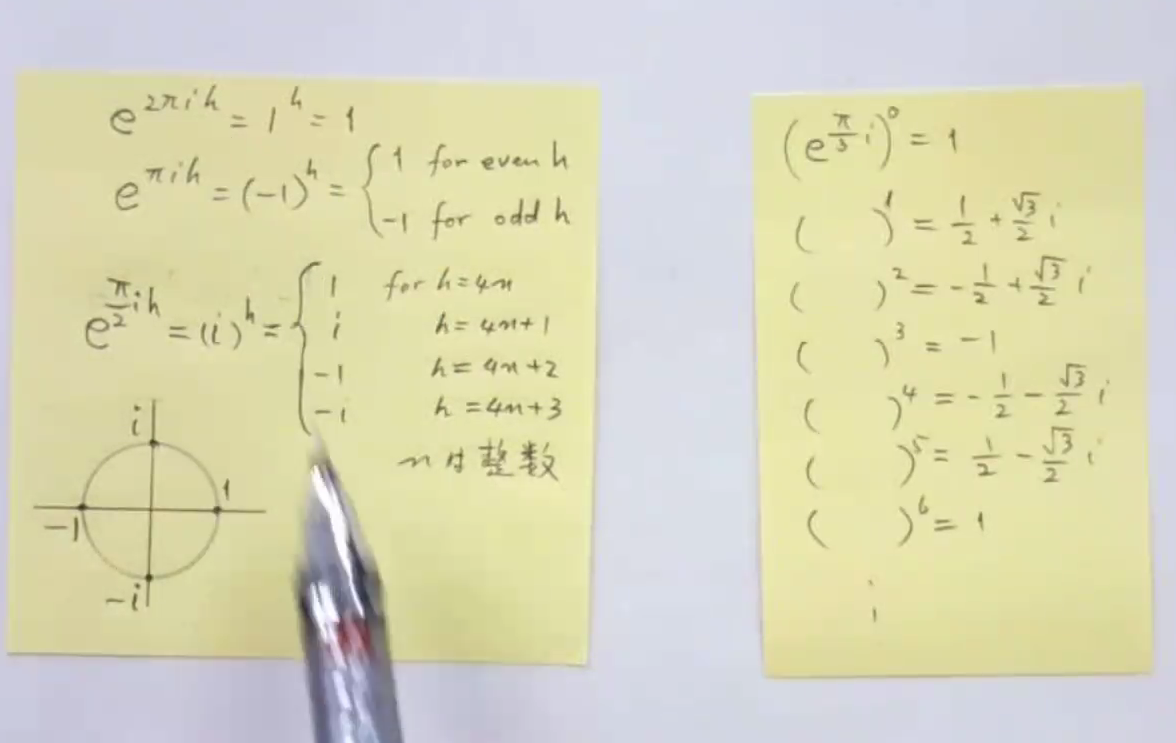 e^{2πih} = 1^h = 1
e^{πih} = (-1)^h = { 1 for even h
-1 for odd h
e^{\frac{π}{2}ih} = (i)^h = { 1 for h=4n
i h=4n+1
-1 h=4n+2
-i h=4n+3
n は 整数
i
-1 1
-i
(e^{\frac{π}{3}i})^0 = 1
( )^1 = \frac{1}{2} + \frac{√3}{2} i
( )^2 = -\frac{1}{2} + \frac{√3}{2} i
( )^3 = -1
( )^4 = -\frac{1}{2} - \frac{√3}{2} i
( )^5 = \frac{1}{2} - \frac{√3}{2} i
( )^6 = 1
⋮